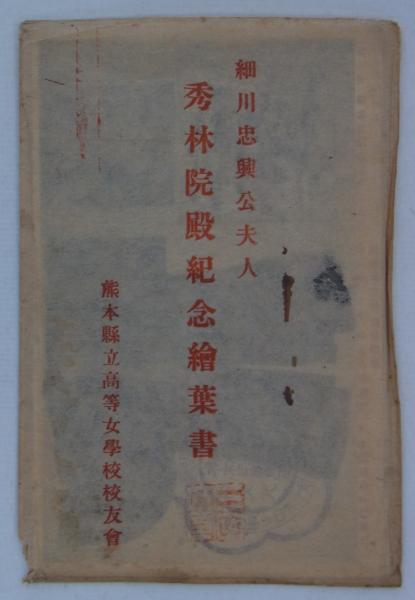 細川忠興公夫人
秀林院殿紀念繪葉書
熊本縣立高等女學校校友會